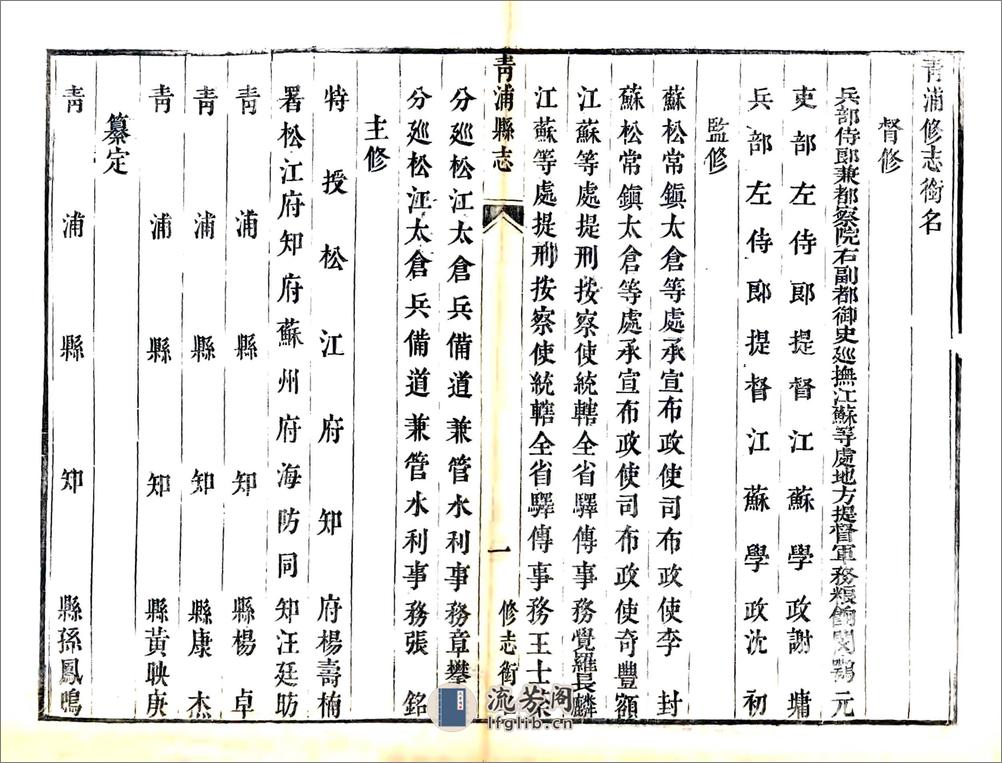 青浦修志銜名
督修
兵部侍郎兼都察院右副都御史廵撫江蘇等處地方提督軍務糧餉閔鶚元
吏部左侍郎提督江蘇學政謝墉
兵部左侍郎提督江蘇學政沈初
監修
蘇松常鎮太倉等處承宣布政使司布政使李封
蘇松常鎮太倉等處承宣布政使司布政使奇豐額
江蘇等處提刑按察使統轄全省驛傳事務覺羅長麟
江蘇等處提刑按察使統轄全省驛傳事務王士棻
青浦縣志
一
修志銜
分廵松江太倉兵備道兼管水利事務章攀
分廵松江太倉兵備道兼管水利事務張銘
主修
特授松江府知府楊壽楠
署松江府知府蘇州府海防同知汪廷昉
青浦縣知縣楊卓
青浦縣知縣康杰
青浦縣知縣黃映庚
纂定
青浦縣知縣孫鳳鳴
流芬阁
lfglib.cn